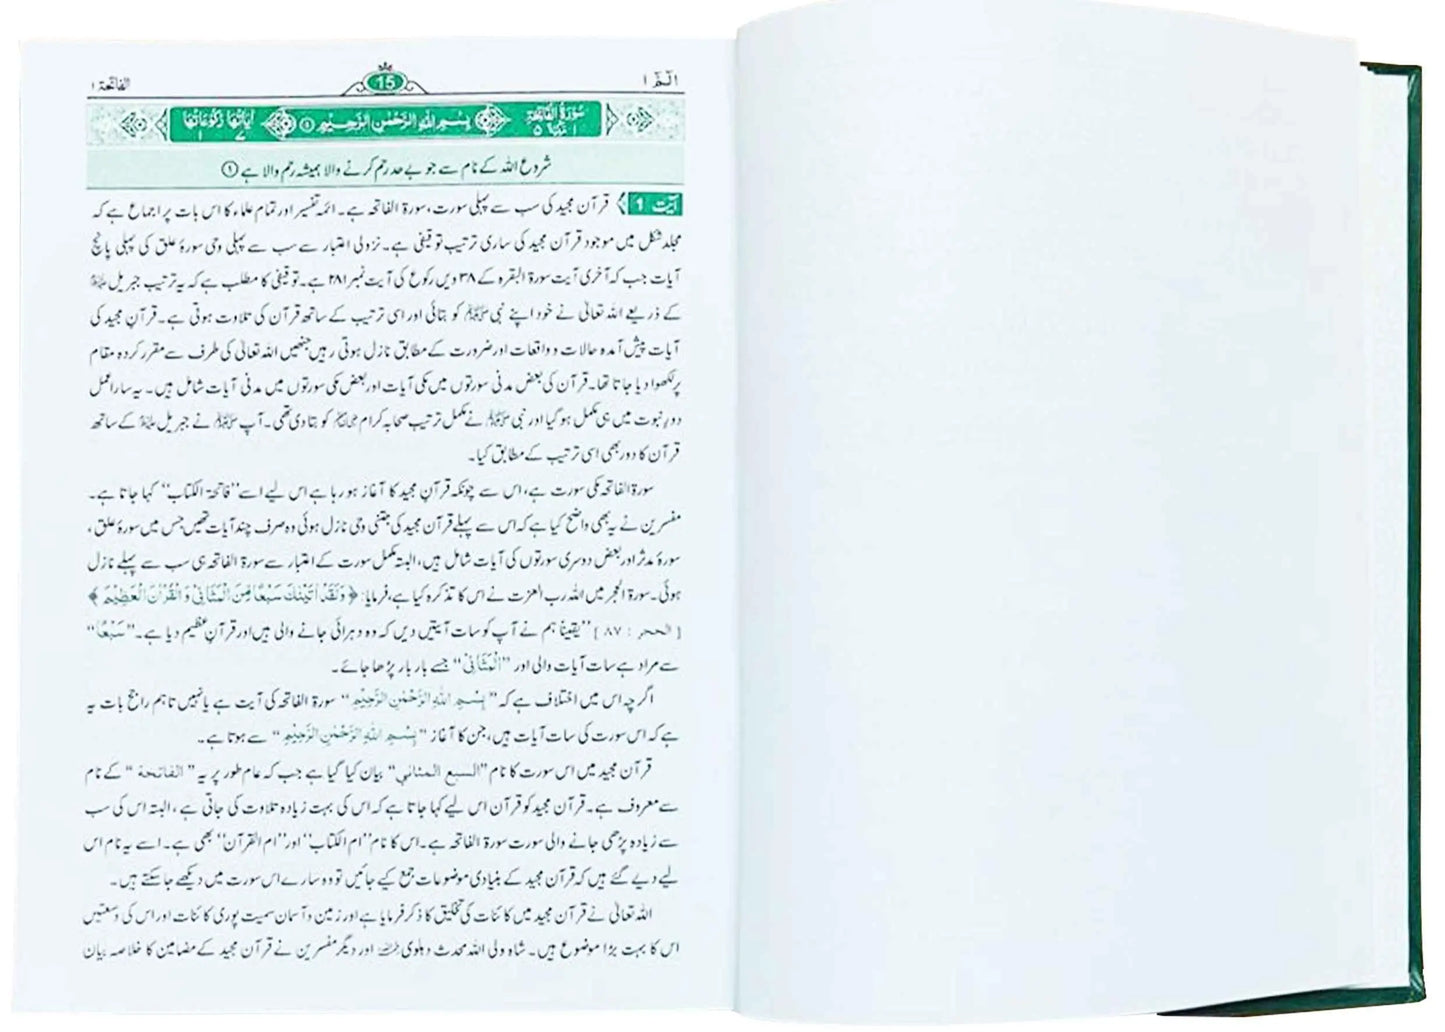 الٓمّٓ ۱
15
الفاتحة ۱
سُوْرَةُ الْفَاتِحَةِ
بِسْمِ اللهِ الرَّحْمٰنِ الرَّحِيْمِ
اٰيَاتُهَا رُكُوْعَاتُهَا
شروع اللہ کے نام سے جو بے حد رحم کرنے والا ہمیشہ رحم والا ہے ①
آیت 1 قرآن مجید کی سب سے پہلی سورت، سورۃ الفاتحہ ہے۔ ائمہ تفسیر اور تمام علماء کا اس بات پر اجماع ہے کہ
مجلد شکل میں موجود قرآن مجید کی ساری ترتیب توقیفی ہے۔ نزولی اعتبار سے سب سے پہلی وحی سورۂ علق کی پہلی پانچ
آیات جب کہ آخری آیت سورۃ البقرہ کے ۳۸ ویں رکوع کی آیت نمبر ۲۸۱ ہے۔ توقیفی کا مطلب ہے کہ یہ ترتیب جبریل
کے ذریعے اللہ تعالیٰ نے خود اپنے نبی ﷺ کو بتائی اور اسی ترتیب کے ساتھ قرآن کی تلاوت ہوتی ہے۔ قرآن مجید کی
آیات پیش آمدہ حالات و واقعات اور ضرورت کے مطابق نازل ہوتی رہیں جنھیں اللہ تعالیٰ کی طرف سے مقرر کردہ مقام
پر لکھوا دیا جاتا تھا۔ قرآن کی بعض مدنی سورتوں میں مکی آیات اور بعض مکی سورتوں میں مدنی آیات شامل ہیں۔ یہ سارا عمل
دورِ نبوت میں ہی مکمل ہو گیا اور نبی ﷺ نے مکمل ترتیب صحابہ کرام کو بتا دی تھی۔ آپ ﷺ نے جبریل کے ساتھ
قرآن کا دور بھی اسی ترتیب کے مطابق کیا۔
سورۃ الفاتحہ مکی سورت ہے، اس سے چونکہ قرآنِ مجید کا آغاز ہو رہا ہے اس لیے اسے ”فاتحۃ الکتاب“ کہا جاتا ہے۔
مفسرین نے یہ بھی واضح کیا ہے کہ اس سے پہلے قرآن مجید کی جتنی وحی نازل ہوئی وہ صرف چند آیات تھیں جس میں سورۂ علق،
سورۂ مدثر اور بعض دوسری سورتوں کی آیات شامل ہیں، البتہ مکمل سورت کے اعتبار سے سورۃ الفاتحہ ہی سب سے پہلے نازل
ہوئی۔ سورۃ الحجر میں اللہ رب العزت نے اس کا تذکرہ کیا ہے، فرمایا: ﴿ وَلَقَدْ اٰتَيْنٰكَ سَبْعًا مِّنَ الْمَثَانِيْ وَ الْقُرْاٰنَ الْعَظِيْمَ ﴾
[الحجر : ۸۷] ”یقینا ہم نے آپ کو سات آیتیں دیں کہ وہ دہرائی جانے والی ہیں اور قرآنِ عظیم دیا ہے۔“ ”سَبْعًا“
سے مراد ہے سات آیات والی اور ”الْمَثَانِيْ“ جسے بار بار پڑھا جائے۔
اگرچہ اس میں اختلاف ہے کہ ”بِسْمِ اللهِ الرَّحْمٰنِ الرَّحِيْمِ“ سورۃ الفاتحہ کی آیت ہے یا نہیں تاہم راجح بات یہ
ہے کہ اس سورت کی سات آیات ہیں، جن کا آغاز ”بِسْمِ اللهِ الرَّحْمٰنِ الرَّحِيْمِ“ سے ہوتا ہے۔
قرآن مجید میں اس سورت کا نام ”السبع المثاني“ بیان کیا گیا ہے جب کہ عام طور پر یہ ”الفاتحة“ کے نام
سے معروف ہے۔ قرآن مجید کو قرآن اس لیے کہا جاتا ہے کہ اس کی بہت زیادہ تلاوت کی جاتی ہے، البتہ اس کی سب
سے زیادہ پڑھی جانے والی سورت سورۃ الفاتحہ ہے۔ اس کا نام ”ام الکتاب“ اور ”ام القرآن“ بھی ہے۔ اسے یہ نام اس
لیے دیے گئے ہیں کہ قرآن مجید کے بنیادی موضوعات جمع کیے جائیں تو وہ سارے اس سورت میں دیکھے جا سکتے ہیں۔
اللہ تعالیٰ نے قرآن مجید میں کائنات کی تخلیق کا ذکر فرمایا ہے اور زمین و آسمان سمیت پوری کائنات اور اس کی وسعتیں
اس کا بہت بڑا موضوع ہیں۔ شاہ ولی اللہ محدث دہلوی اور دیگر مفسرین نے قرآن مجید کے مضامین کا خلاصہ بیان